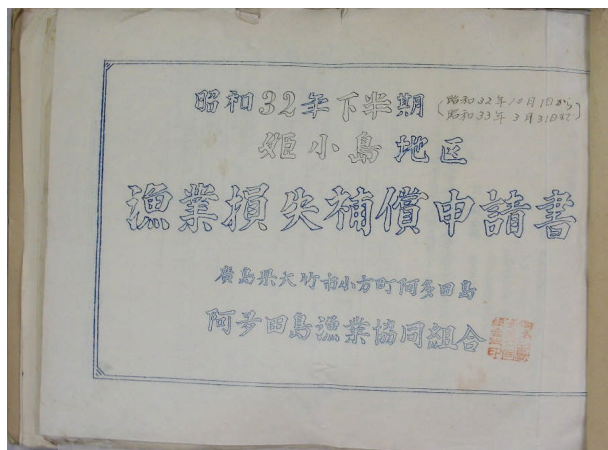 昭和32年下半期
(昭和32年10月1日から
昭和33年3月31日まで)
姫小島地区
漁業損失補償申請書
廣島県大竹市小方町阿多田島
阿多田島漁業協同組合